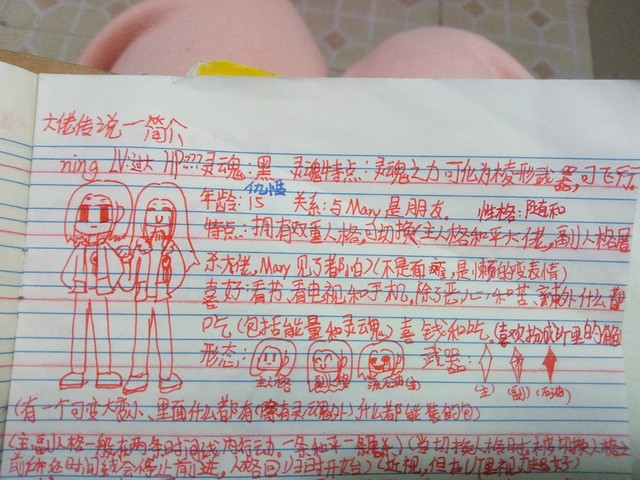 大佬传说一简介
ning LV:过大 HP:??? 灵魂:黑 灵魂特点:灵魂之力可化为棱形武器,可飞行
年龄:15 关系:与Mary是朋友。 性格:随和
特点:拥有双重人格,可切换(主人格和平大佬,副人格屠
杀大佬,Mary见了都怕)(不是面瘫,是懒的变表情)
喜好:看书、看电视和手机,除了恶心和苦、辣外什么都
吃(包括能量和灵魂)喜钱和吃,喜欢
形态: 武器:
主人格 副人格
主 副 石油
(有一个可变大变小、里面什么都有(除有灵魂外),什么都能装的包)
(主副人格一般在两条时间线内行动。一条和平一条屠杀)(当切换人格时,被切换人格
时间线会停止前进,人格回归时开始)(近视,但